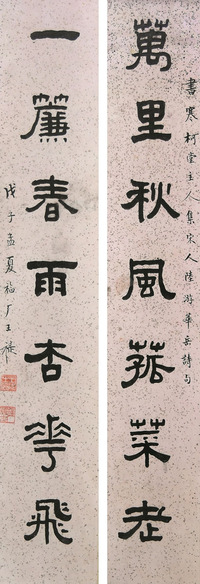 書寒柯堂主人集宋人陸游華岳詩句
萬里秋風菰菜老
一簾春雨杏花飛
戊子孟夏福厂王禔